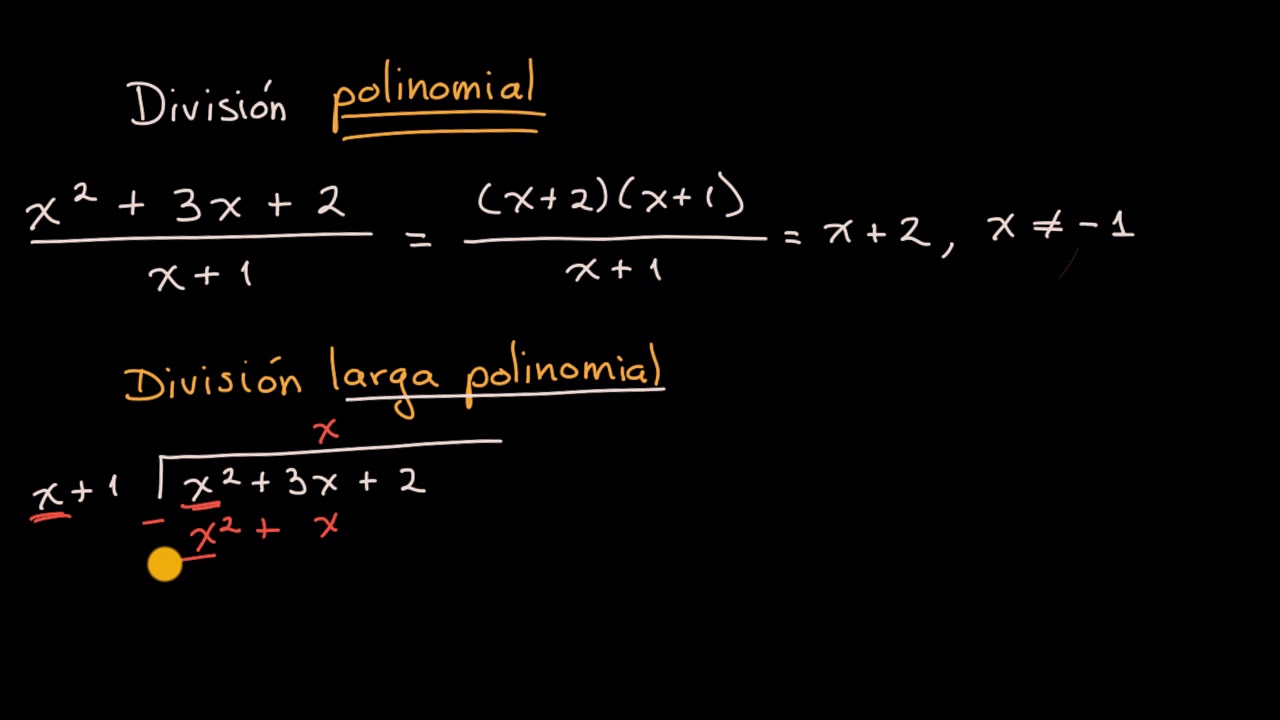 División polinomial
x² + 3x + 2 / x + 1 = (x+2)(x+1) / x + 1 = x + 2, x ≠ -1
División larga polinomial
x
x + 1 x² + 3x + 2
- x² + x